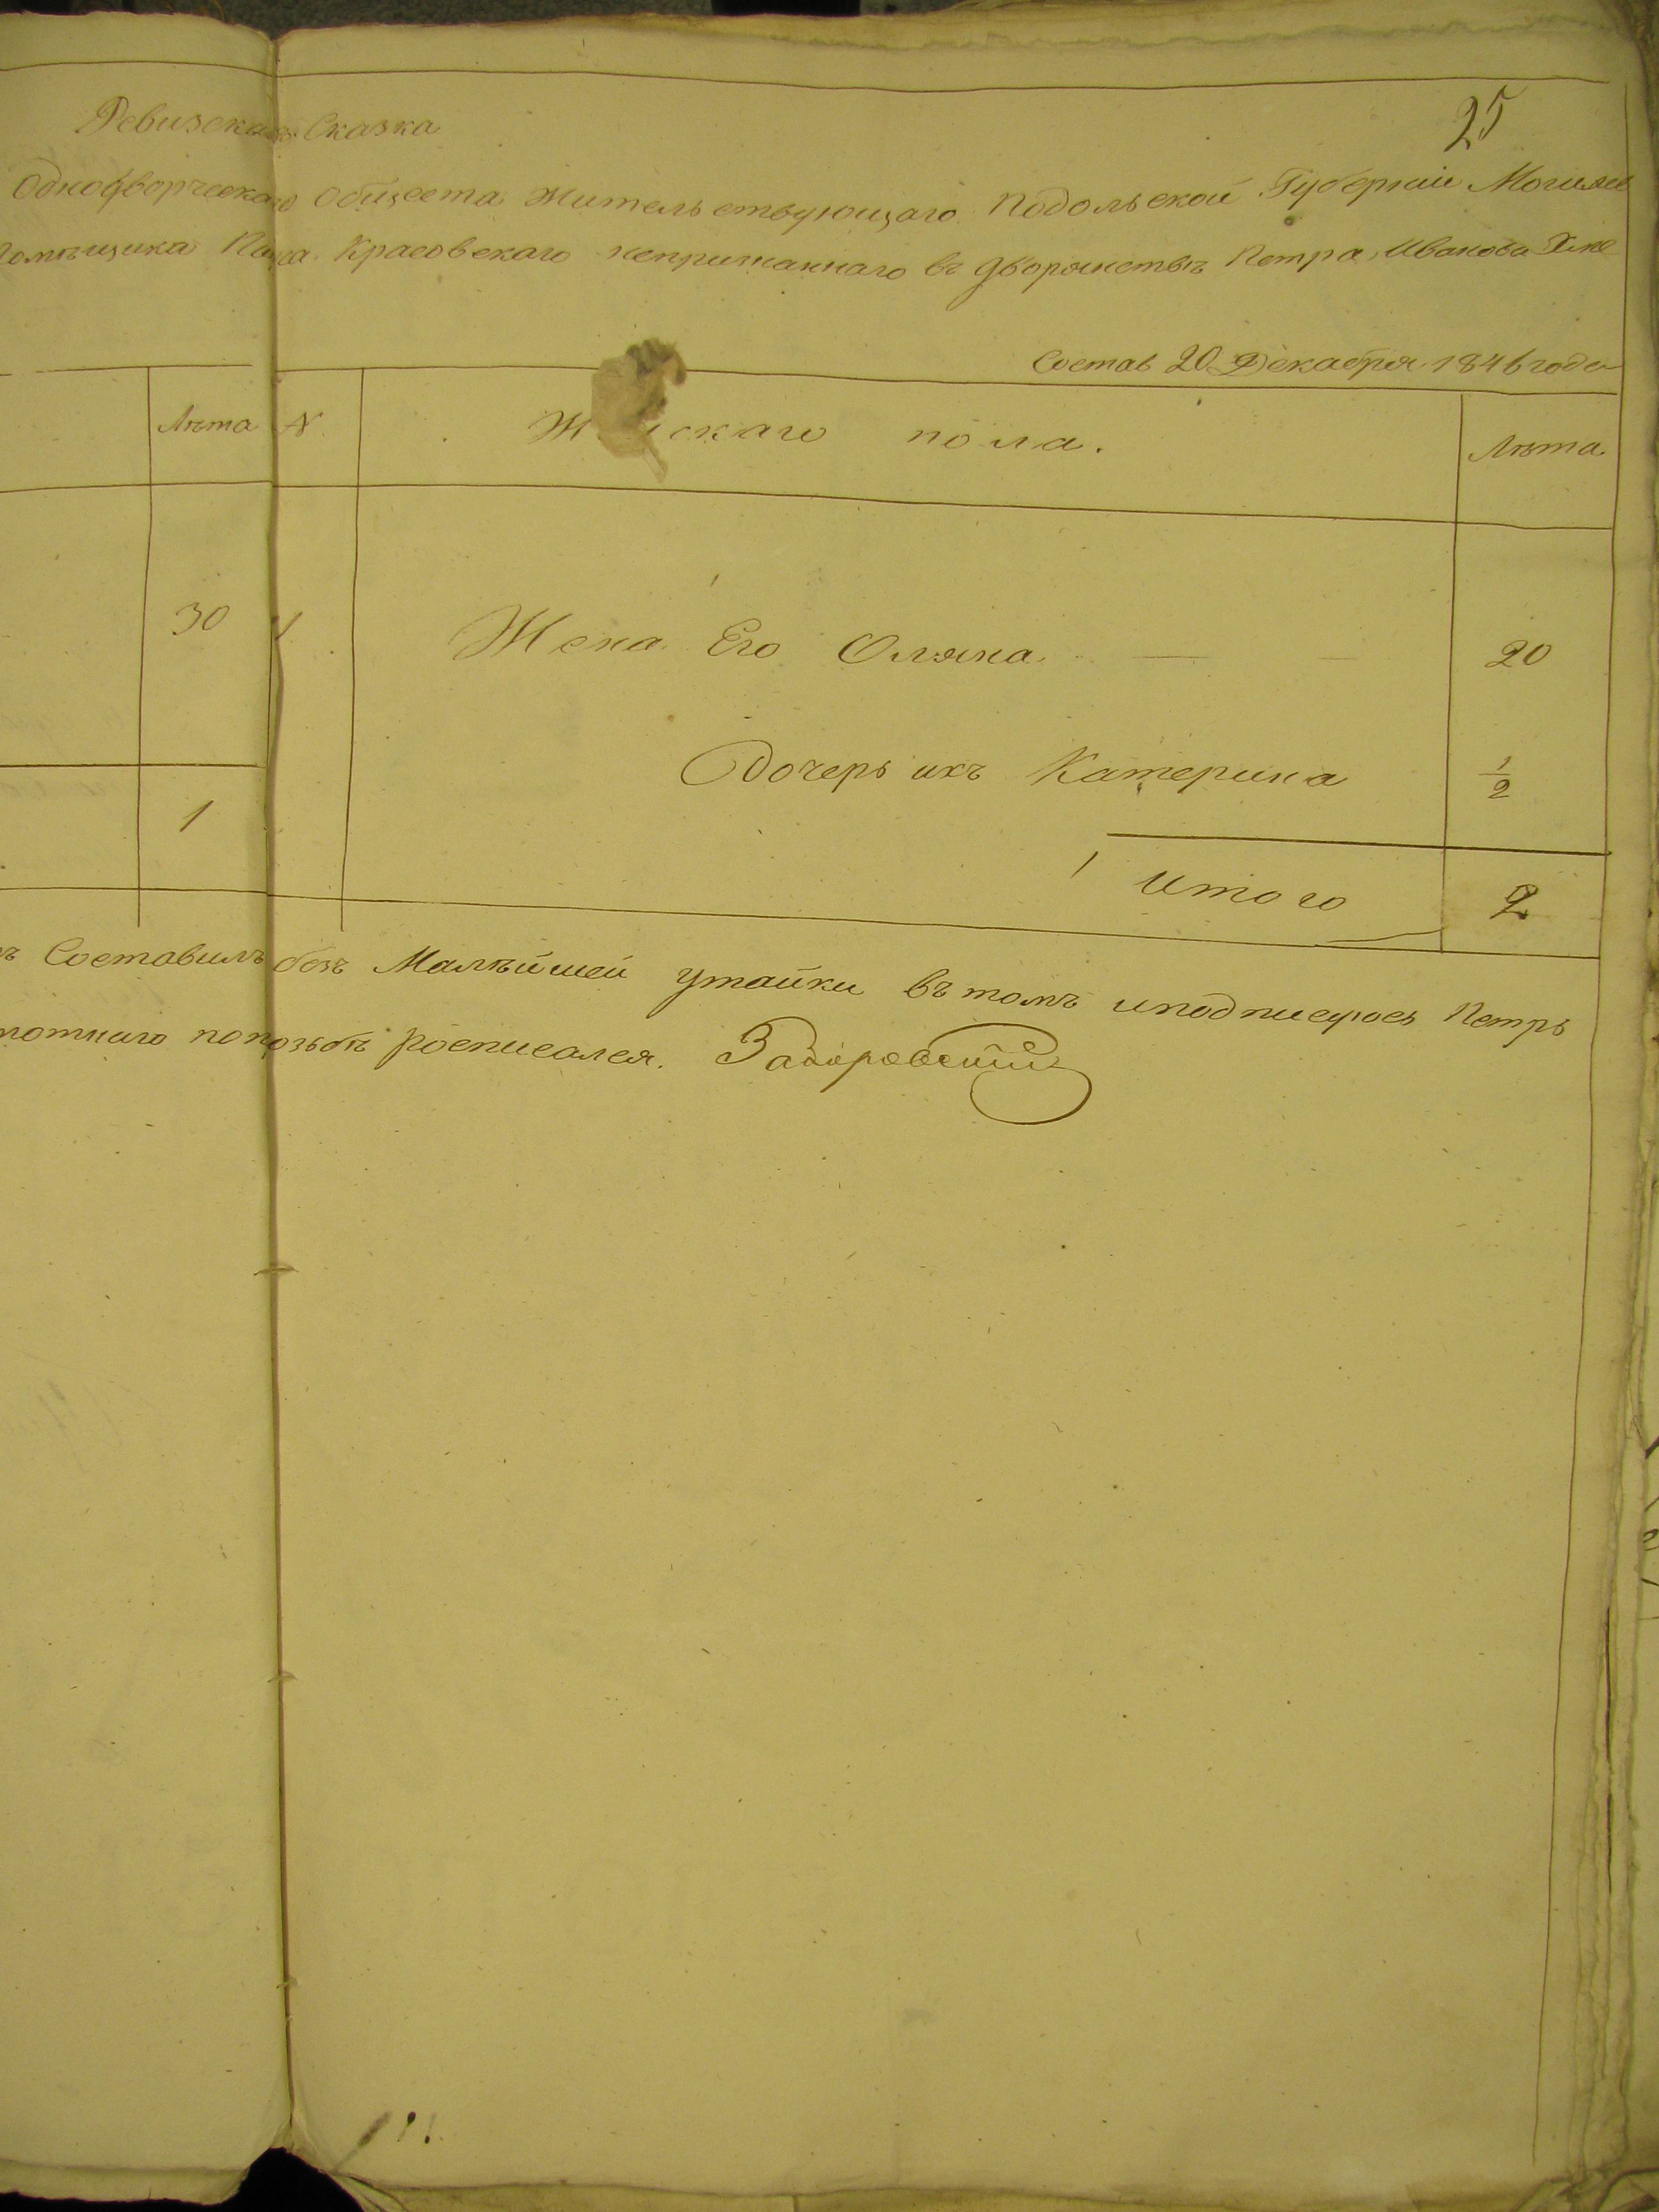 25
Ревизская Сказка
Однодворческаго Общеста Жительствующаго Подольской Губернии Могилев
помѣщика Пана Красовскаго непризнаннаго въ дворянствѣ Петра Иванова
Состав 20 Декабря 1846 года
Лѣта N. Ж скаго пола. Лѣта
30 Жена Его Оляна 20
дочерь ихъ Катерина 1/2
1 Итого 2
ъ Составилъ безъ Малѣйшей утайки въ томъ иподписуюсь Петръ
мотнаго росписался.